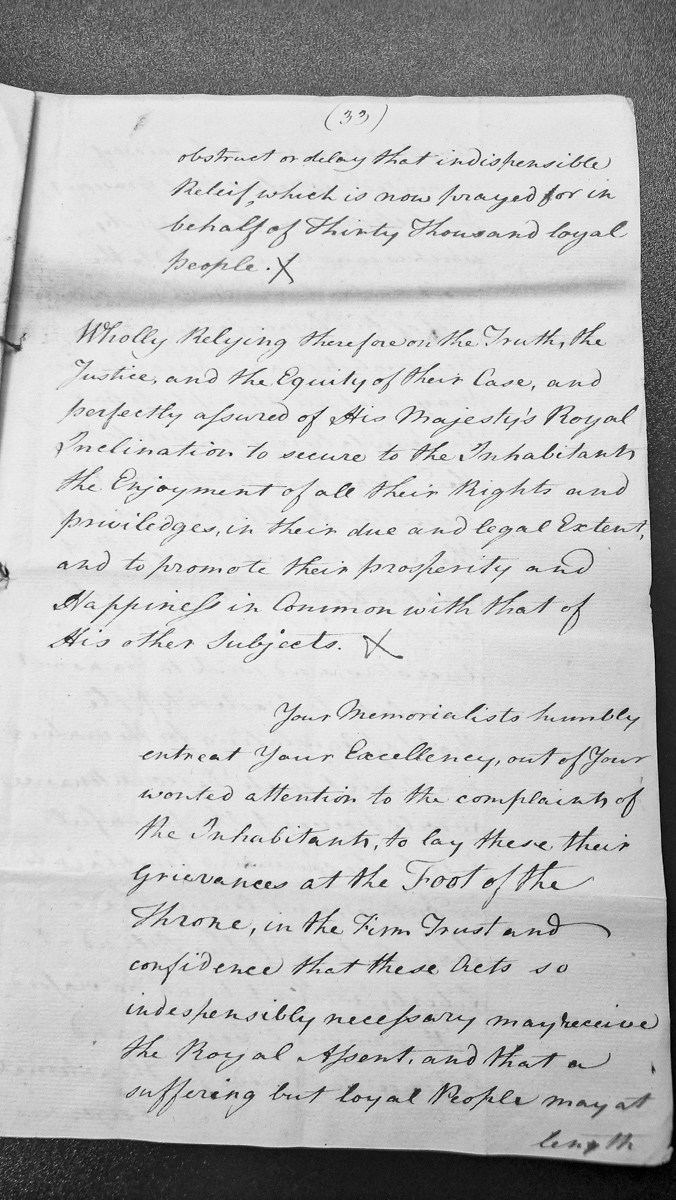 (33)
obstruct or delay that indispensible
Releif, which is now prayed for in
behalf of Thirty Thousand loyal
people. X
Wholly Relying therefore on the Truth, the
Justice, and the Equity of their Case, and
perfectly aſsured of His Majesty's Royal
Inclination to secure to the Inhabitants
the Enjoyment of all their Rights and
priviledges, in their due and legal Extent,
and to promote their prosperity and
Happineſs in Common with that of
His other Subjects. X
Your Memorialists humbly
entreat Your Excellency, out of Your
wonted attention to the complaints of
the Inhabitants, to lay these their
Grievances at the Foot of the
Throne, in the Firm Trust and
confidence that these Acts so
indespensibly neceſsary may receive
the Royal Aſsent, and that a
suffering but loyal People may at
length